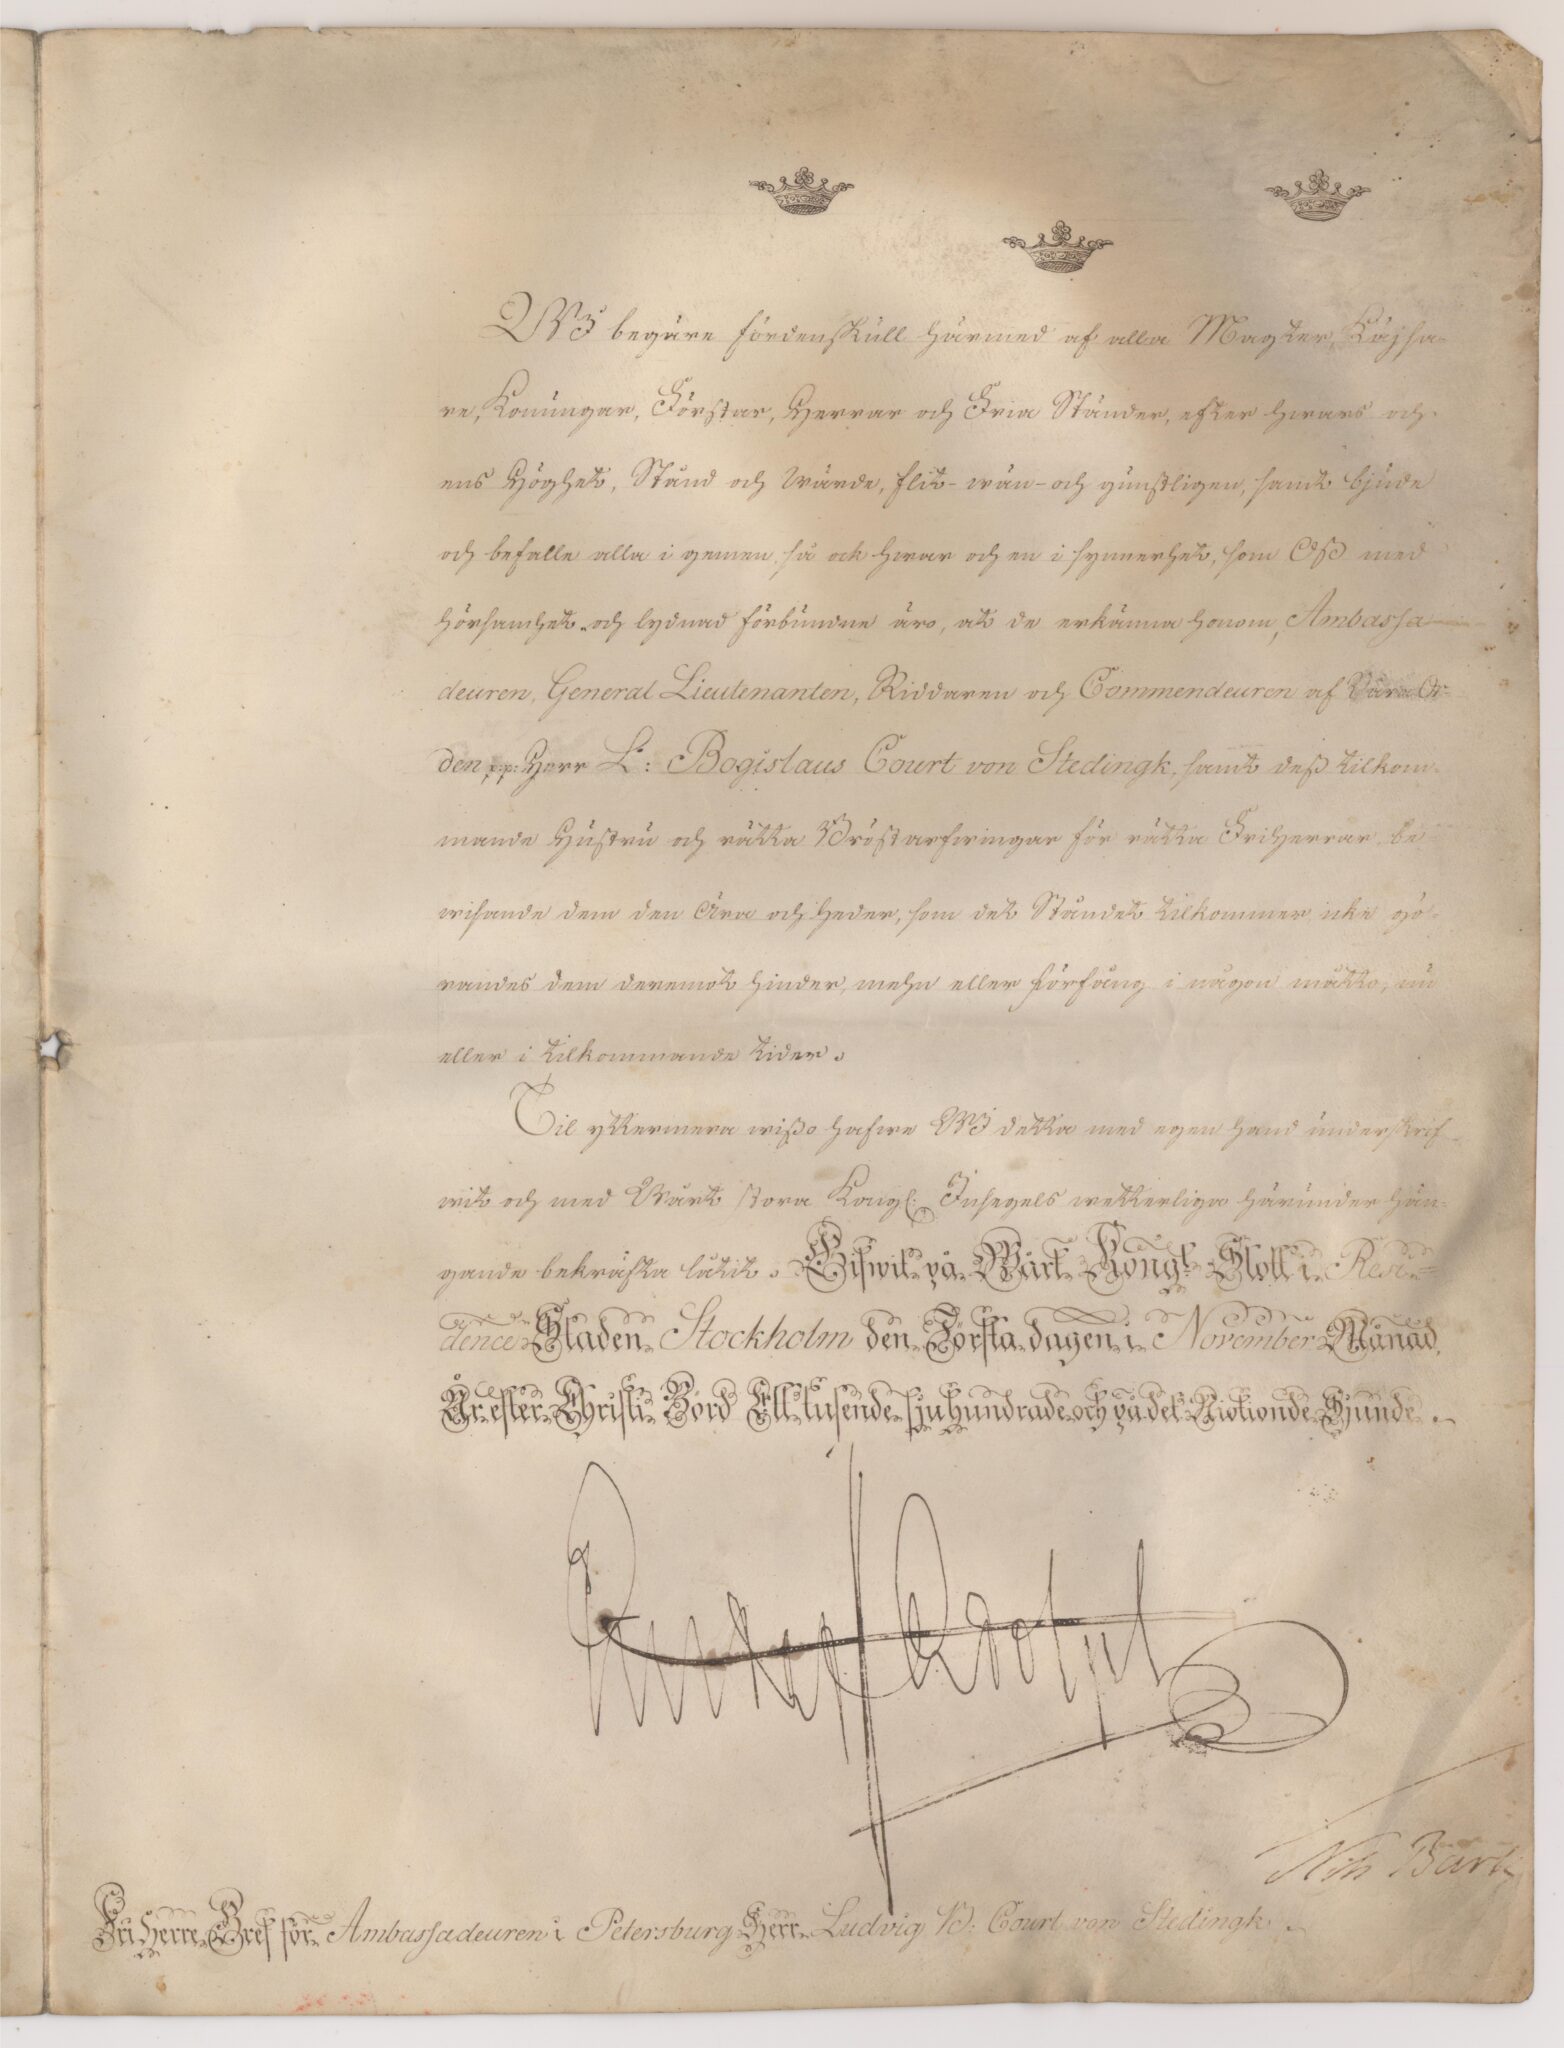 WJ begäre fördenskull härmed af alla Magter, Käjsa-
re, Konungar, Förstar, Herrar och Fria Ständer, efter hwars och
ens Höghet, Stånd och wärde, flit- wän- och gunstligen, samt bjude
och befalle alla i gemen, så ock hwar och en i synnerhet, som Oß med
hörsamhet och lydnad förbundne äro, at de erkänna honom, Ambassa-
deuren, General Lieutenanten, Riddaren och Commendeuren af Våra Or-
den p.p: Herr L: Bogislaus Court von Stedingk, samt deß tilkom-
mande Hustru och rätta Bröstarfwingar för rätta Friherrar, be-
wisande dem den Ära och heder, som det Ståndet tilkommer, icke gö-
randes dem deremot hinder, mehn eller förfång i någon måtto, nu
eller i tilkommande tider.
Til yttermera wißo hafwe WJ detta med egen hand underskrif-
wit och med Wårt stora Kongl: Insegels wetterliga härunder hän-
gande bekräfta låtit. Gifwit på Wårt Kongl. Slott i Resi-
dence Staden Stockholm den Första dagen i November Månad,
År efter Christi Börd Ett tusende sju hundrade och på det Nittionde Sjunde.
Gustaf Adolph
Fri Herre Bref för Ambassadeuren i Petersburg Herr Ludvig B: Court von Stedingk.